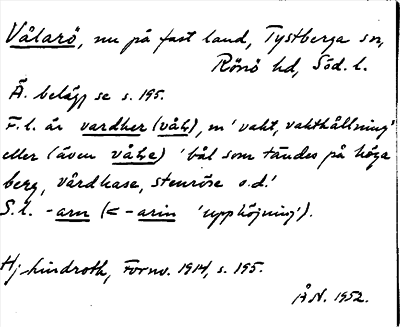 Vålarö, nu på fast land, Tystberga sn,
Rönö hd, Söd. l.
Ä. belägg se s. 195.
F. l. är vardher (våþ), m 'vakt, vakthållning'
eller (även våþe) 'bål som tändes på höga
berg, vårdkase, stenröse o.d.'
S. l. -arn (< -arin 'upphöjning').
Hj. Lindroth, Fornv. 1914, s. 195.
ÅN. 1952.